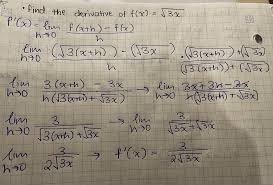 • find the derivative of f(x) = √3x
f'(x) = lim h→0 f(x+h) - f(x) / h
lim h→0 (√3(x+h)) - (√3x) / h · (√3(x+h)) + (√3x) / (√3(x+h)) + (√3x)
lim h→0 3(x+h) - 3x / h(√3(x+h) + √3x) → lim h→0 3x+3h-3x / h(√3(x+h) + √3x)
lim h→0 3 / √3(x+h) + √3x → lim h→0 3 / √3x + √3x
lim h→0 3 / 2√3x → f'(x) = 3 / 2√3x